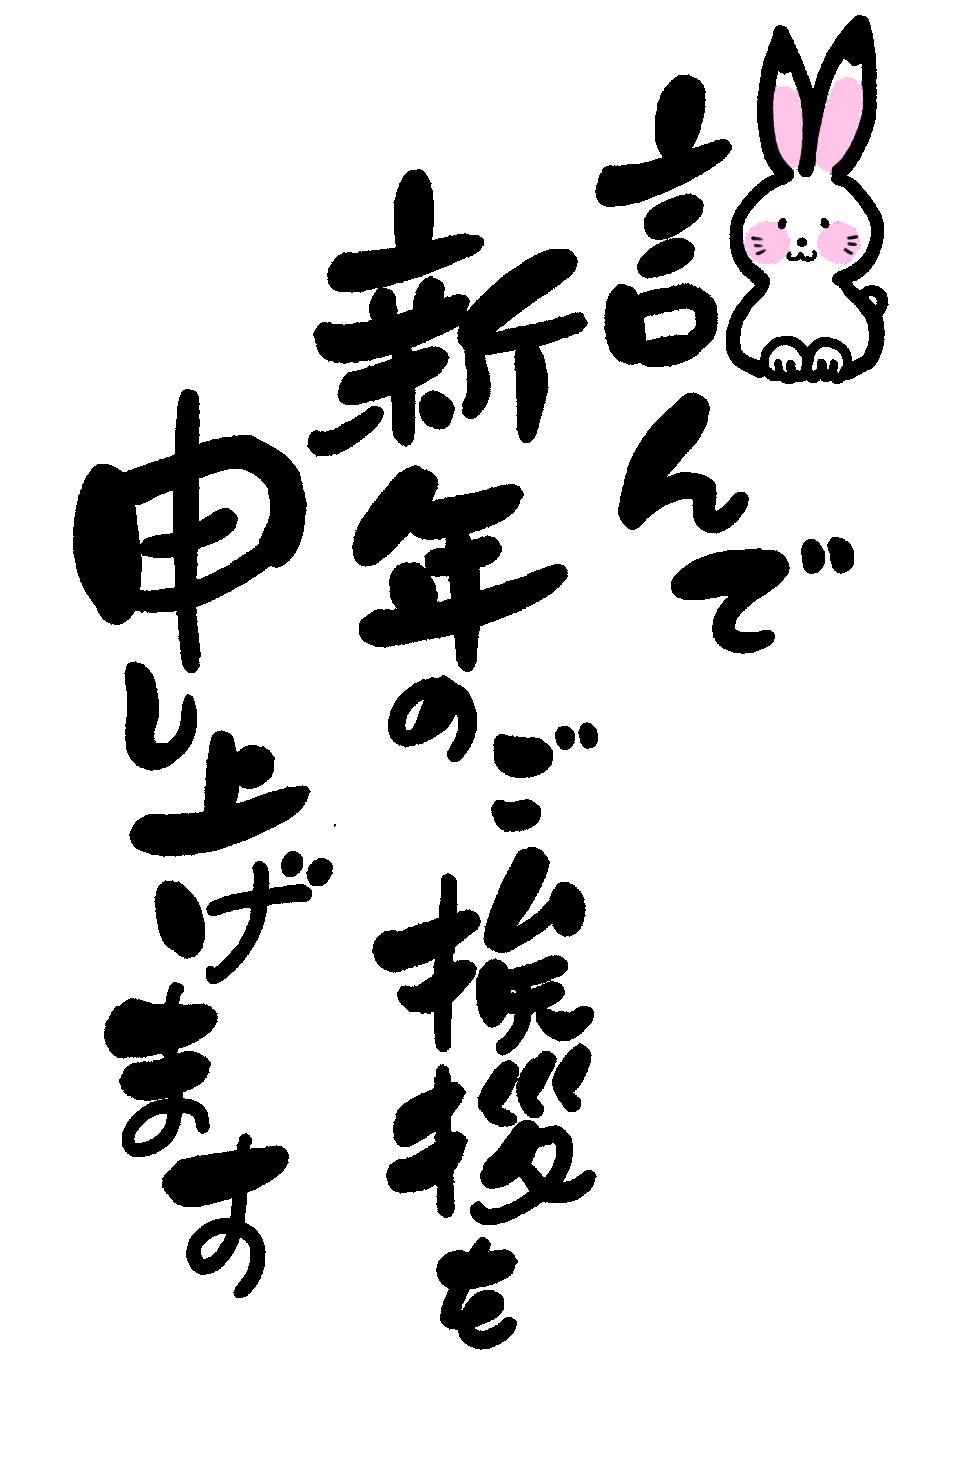 謹んで
新年のご挨拶を
申し上げます